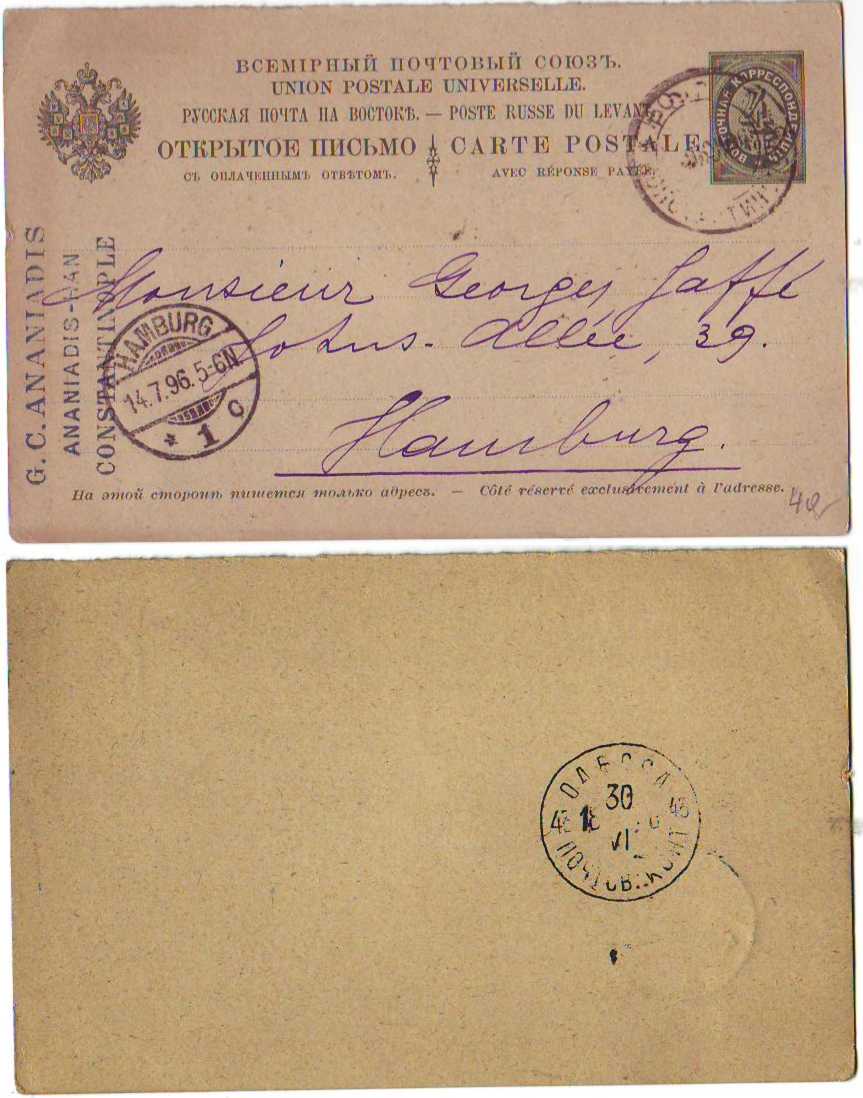 ВСЕМІРНЫЙ ПОЧТОВЫЙ СОЮЗЪ.
UNION POSTALE UNIVERSELLE.
РУССКАЯ ПОЧТА НА ВОСТОКѢ. — POSTE RUSSE DU LEVANT
ОТКРЫТОЕ ПИСЬМО CARTE POSTALE
СЪ ОПЛАЧЕННЫМЪ ОТВѢТОМЪ. AVEC RÉPONSE PAYÉE
ВОСТОЧНАЯ КОРРЕСПОНДЕНЦІЯ
G. C. ANANIADIS
ANANIADIS-HAN
CONSTANTINOPLE
Monsieur Georges Jaffé
Lotus-Allée, 39.
Hamburg.
HAMBURG
14.7.96.5-6N.
* 1 c
На этой сторонѣ пишется только адресъ. — Côté réservé exclusivement à l'adresse.
ОДЕССА
30
18
VI